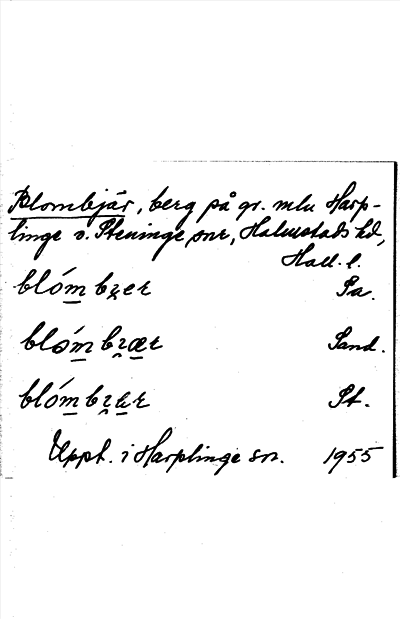 Blombjär, berg på gr. mlu Harp-
linge o. Steninge snr, Halmstads hd,
Hall. l.
blóm bʒer Pa.
blóm bʒær Sand.
blóm bʒær St.
Uppt. i Harplinge sn. 1955